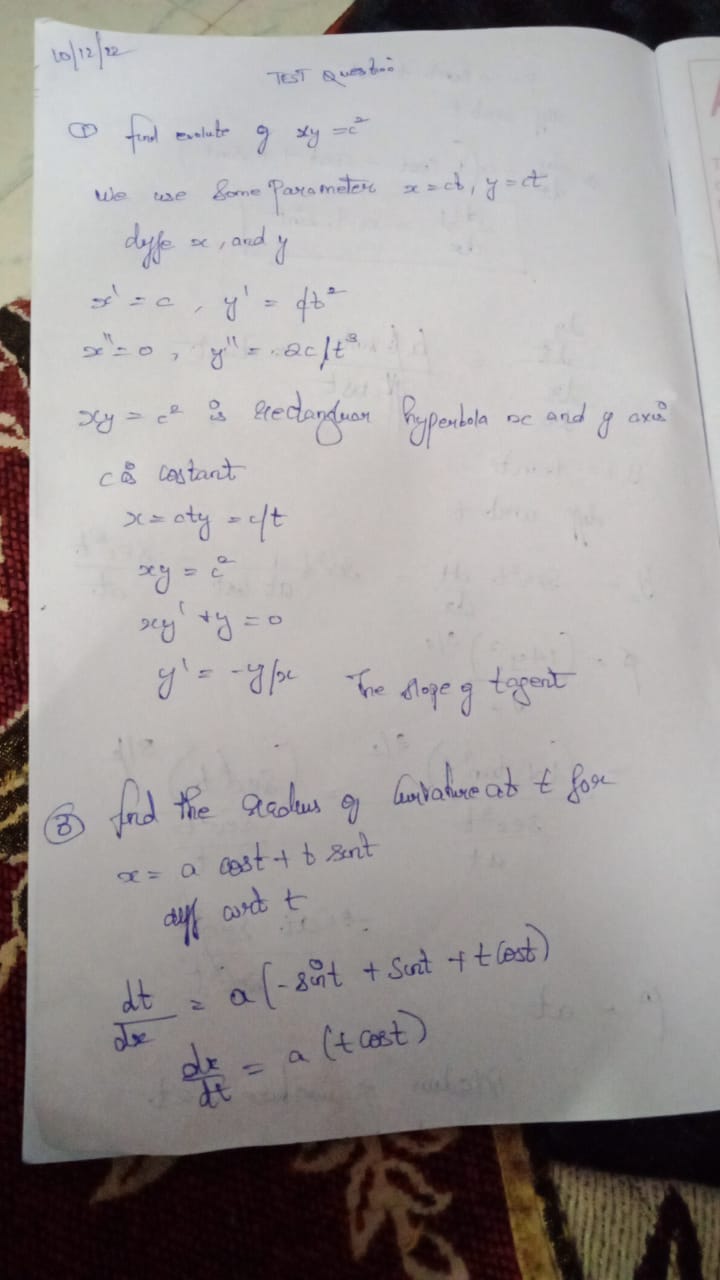 10/12/22
TEST Question
① find evolute of xy = c²
We use some Parameter x = ct, y = ct
diffe x, and y
x' = c, y' = c/t²
x'' = 0, y'' = 2c/t³
xy = c² is Rectangular hyperbola x and y axis
c is costant
x = cty = c/t
xy = c²
xy' + y = 0
y' = -y/x The slope of tagent
③ find the Radius of Curvature at t for
x = a cost + t sint
diff wrt t
dt/dx = a(-sint + sint + t cost)
dx/dt = a (t cost)